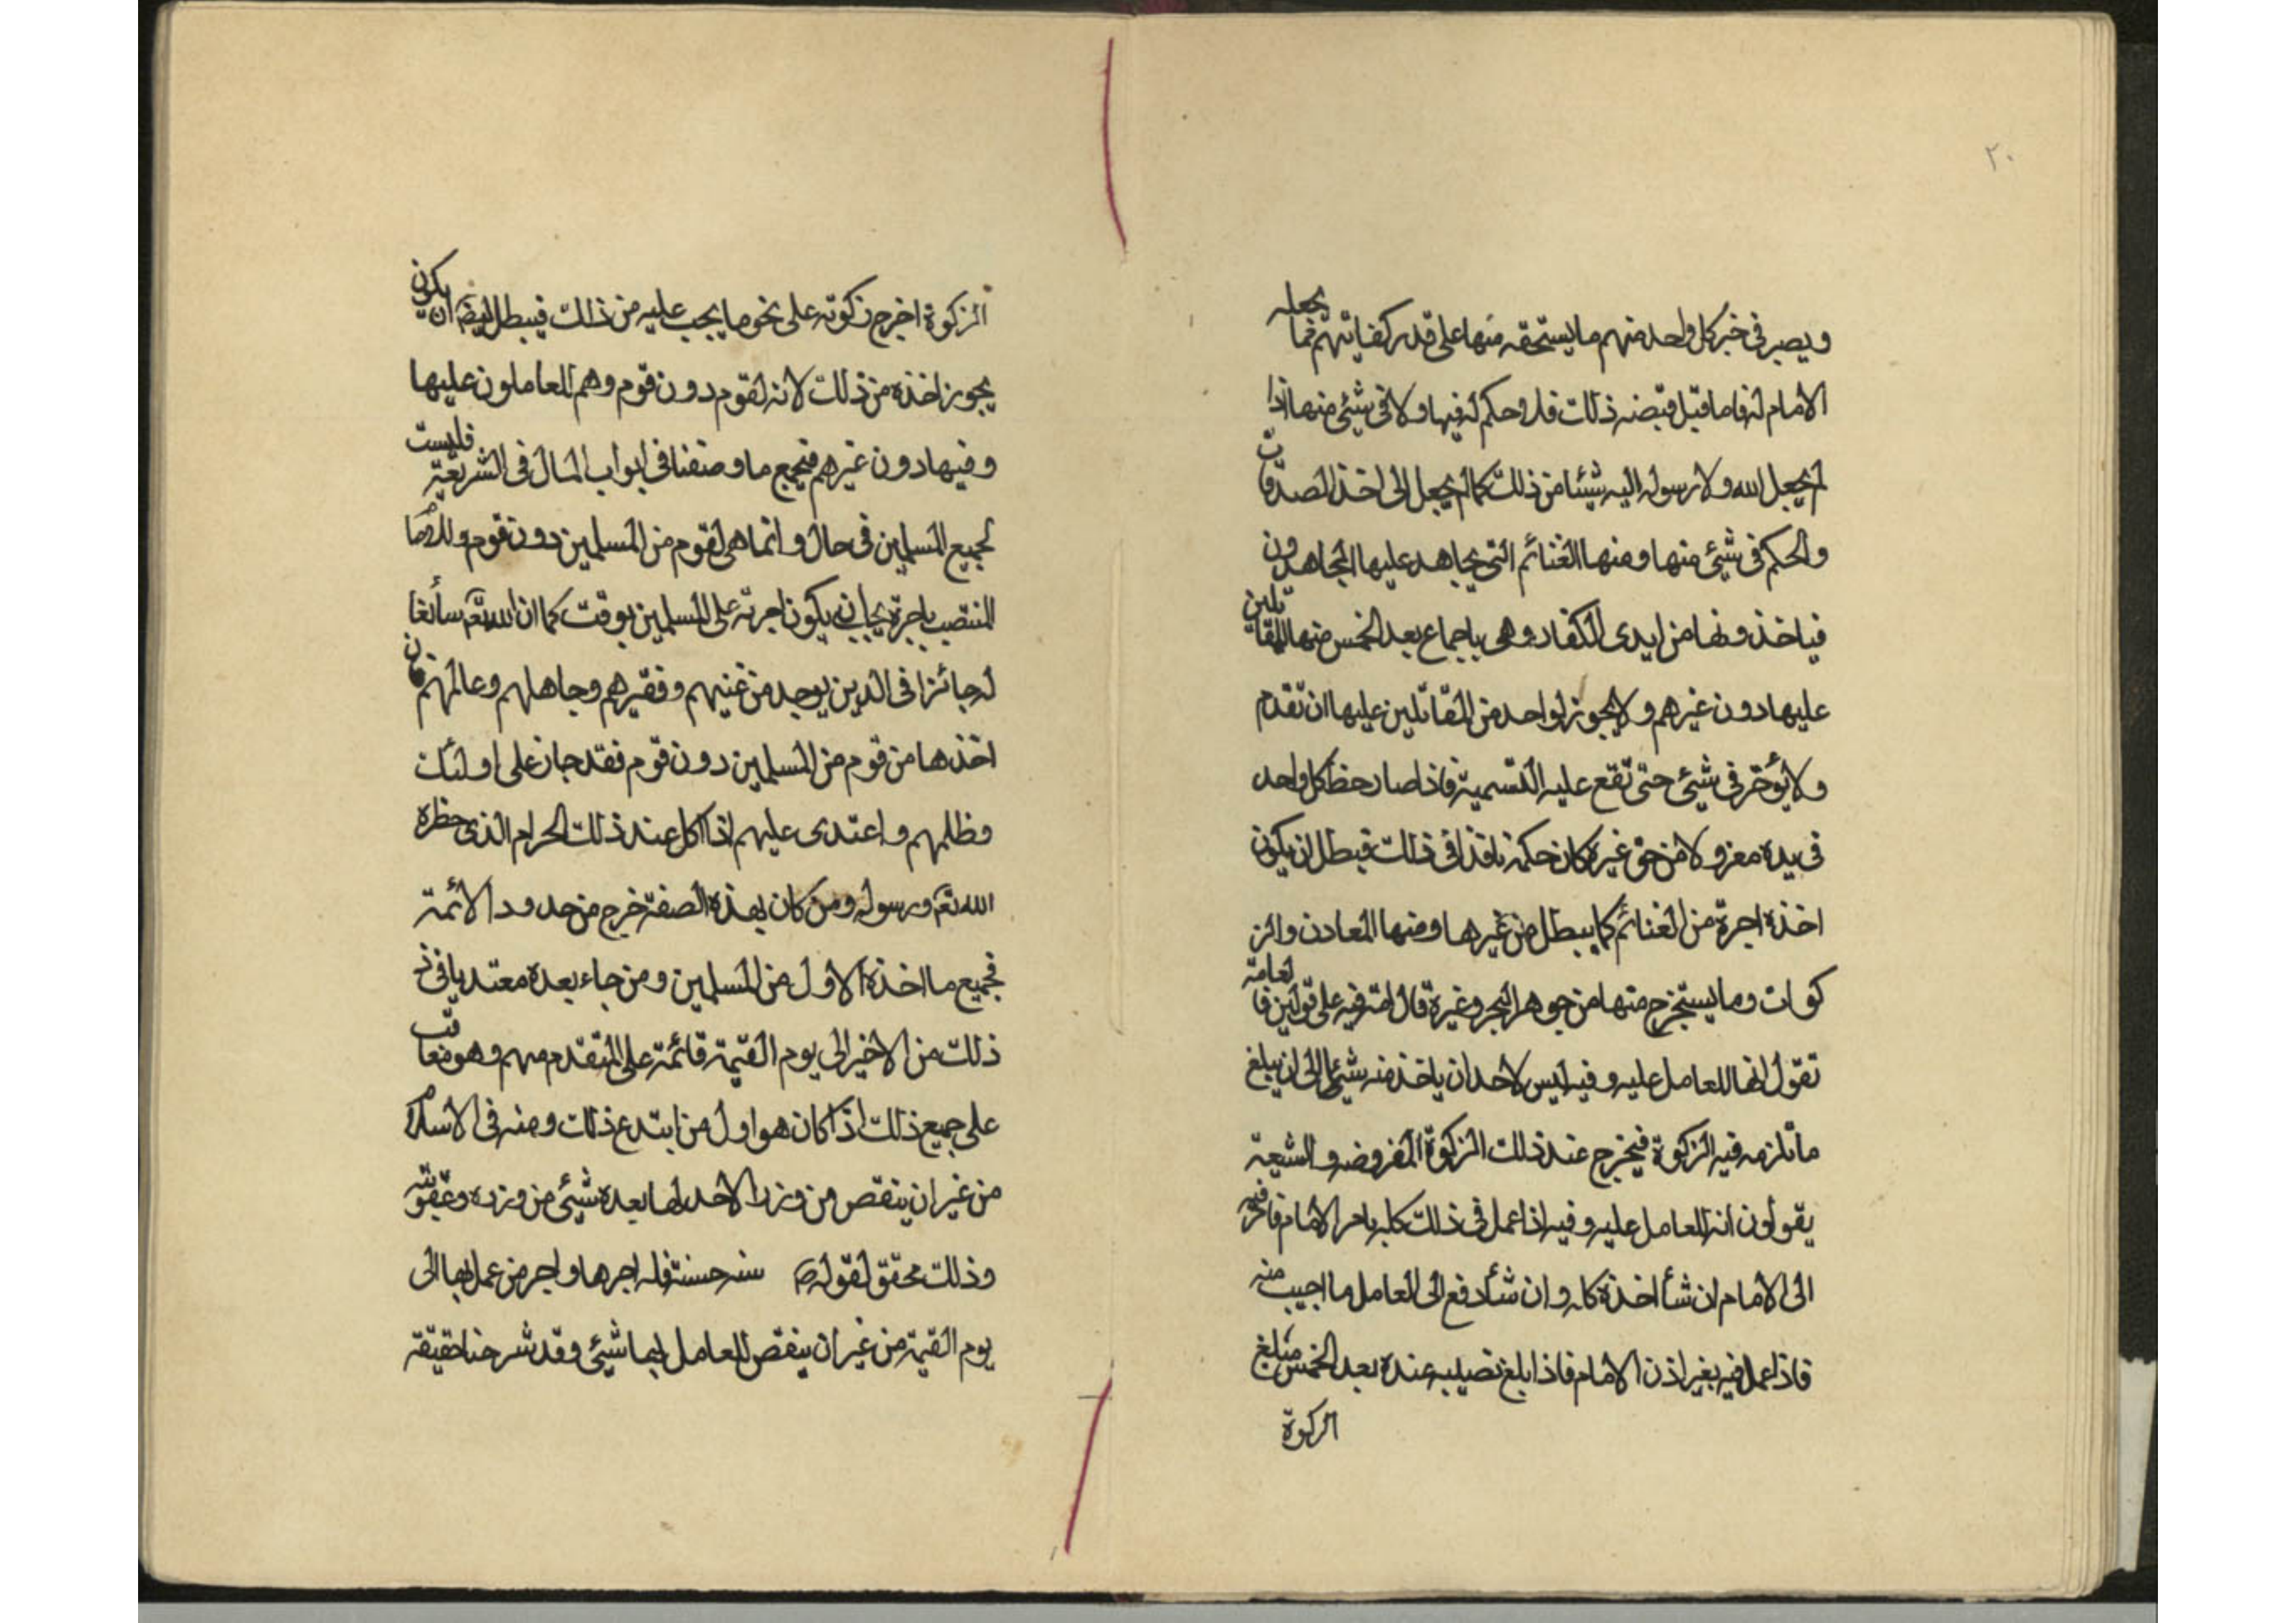 ٢٠
ويصير في خبر كل واحد منهم ما يستحقه منها على قدر كفايتهم فما يجعله
الامام له فاما قبل قبضه ذلك فلا وحكم له فيها ولا في شيئ منها اذا
لم يجعل الله ولا رسوله اليه شيئا من ذلك كما لم يجعل الى اخذ الصدقات
والحكم في شيئ منها ومنها الغنائم التى يجاهد عليها المجاهدون
فياخذونها من ايدى الكفار وهى باجماع بعد الخمس منها للمقاتلين
عليها دون غيرهم ولا يجوز لواحد من المقاتلين عليها ان تقدم
ولا يؤخر في شيئ حتى تقع عليه القسمية فاذا صار حظ كل واحد
فى يده معزولا من حق غيره كان حكمه نافذا فى ذلك فبطل ان يكون
اخذه اجرة من الغنائم كما يبطل من غيرها ومنها المعادن والز
كوات وما يستخرج منها من جوهر البحر وغيره قال امته فيه على قولين فالعامة
تقول انها للعامل عليه وفيه ليس لاحد ان ياخذ منه شيئا الى ان يبلغ
ما تلزمه فيه الزكوة فيخرج عند ذلك الزكوة المفروضه والشيعة
يقولون انه للعامل عليه وفيه اذا عمل فى ذلك كله بامر الامام فامره فيه
الى الامام ان شأ اخذه كله وان شأ دفع الى العامل ما اجيب منه
فاذا عمل فيه بغير اذن الامام فاذا بلغ نصيبه عنده بعد الخمس مبلغ
الزكوة
الزكوة اخرج زكوته على نحو ما يجب عليه من ذلك فيبطل ايضا ان يكون
يجوز اخذه من ذلك لانه لقوم دون قوم وهم العاملون عليها
وفيها دون غيرهم فجميع ما وصفنا فى ابواب المال فى الشريعة فليست
لجميع المسلمين فى حال وانما هى لقوم من المسلمين دون قوم وللامام
المنتصب باجرة يجب ان يكون اجرته على المسلمين بوقت كما ان الله تعم سائغا
له جائزا فى الدين يوجد من غنيهم وفقيرهم وجاهلهم وعالمهم فان
اخذها من قوم من المسلمين دون قوم فقد جار على اولئك
وظلمهم واعتدى عليهم اذا اكل عند ذلك الحرام الذى حظره
الله تعم ورسوله ومن كان بهذه الصفة خرج من حدود الائمة
فجميع ما اخذه الاول من المسلمين ومن جاء بعده معتديا فى
ذلك من الاخير الى يوم القيمة قائمة على المتقدم منهم وهو معاقب
على جميع ذلك اذا كان هو اول من ابتدع ذلك ومنه فى الاسلام
من غير ان ينقص من وزر الاحد لها بعده شيئ من وزره وعقوبته
وذلك محقق لقوله ص سنه حسنة فله اجرها واجر من عمل بها الى
يوم القيمة من غير ان ينقص للعامل بها شيئ وقد شرحنا حقيقة